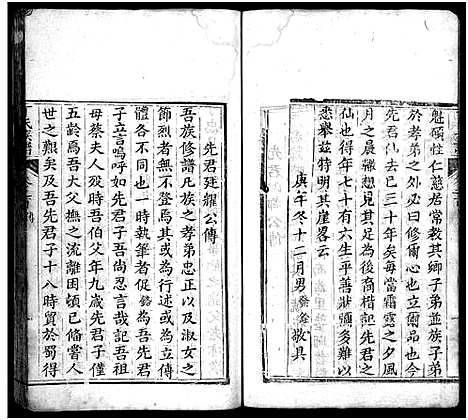 魁碩性仁慈居常教其鄉子弟並族子弟
於孝弟之外必曰修爾心上天爾品也今
先君仙去已三十年矣每當霜露之夕風
月之晨想其足為後裔楷模者記先君之
仙也行年七十有六生平善狀彌多難以
悉舉茲特明其崖畧云
庚午冬十二月男發金敬具
先君廷耀公傳
吾族修譜凡族之孝弟忠正以及淑女之
節烈者無不登其或為行述或為立傳
體各不同也一時執筆者促銘為吾先君
子立言嗚呼如先君子吾尚忍言哉記吾祖
母蔡夫人歿時吾伯父年九歲先君子年
五齡爲吾大父撫之流離困頓已備嘗人
世之艱矣吾先君子十八時貿於蜀得